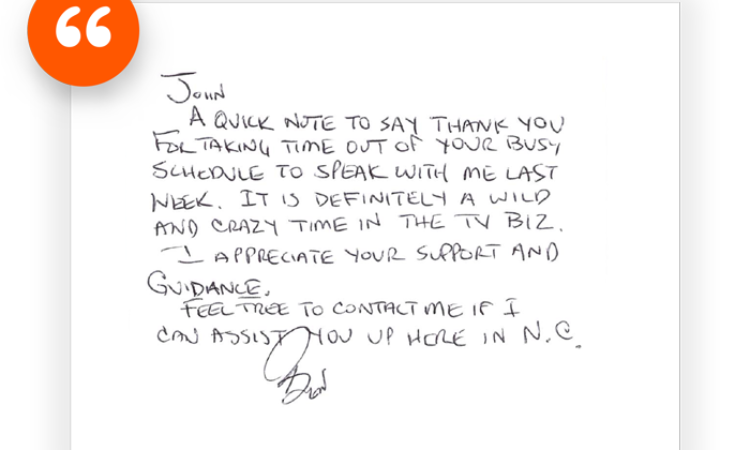 “
JOHN
A QUICK NOTE TO SAY THANK YOU
FOR TAKING TIME OUT OF YOUR BUSY
SCHEDULE TO SPEAK WITH ME LAST
WEEK. IT IS DEFINITELY A WILD
AND CRAZY TIME IN THE TV BIZ.
I APPRECIATE YOUR SUPPORT AND
GUIDANCE.
FEEL FREE TO CONTACT ME IF I
CAN ASSIST YOU UP HERE IN N.C.